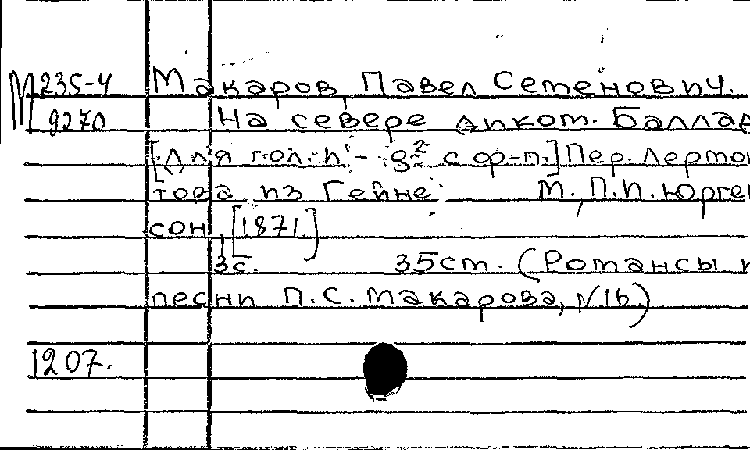 М 235-4 Макаров, Павел Семенович.
9270 На севере диком. Баллад
[Для гол. h - g² с ф-п.] Пер. Лермон
това из Гейне М., П.И. Юрген
сон, [1871.]
3с. 35ст. (Романсы и
песни П.С. Макарова, №16)
1207.